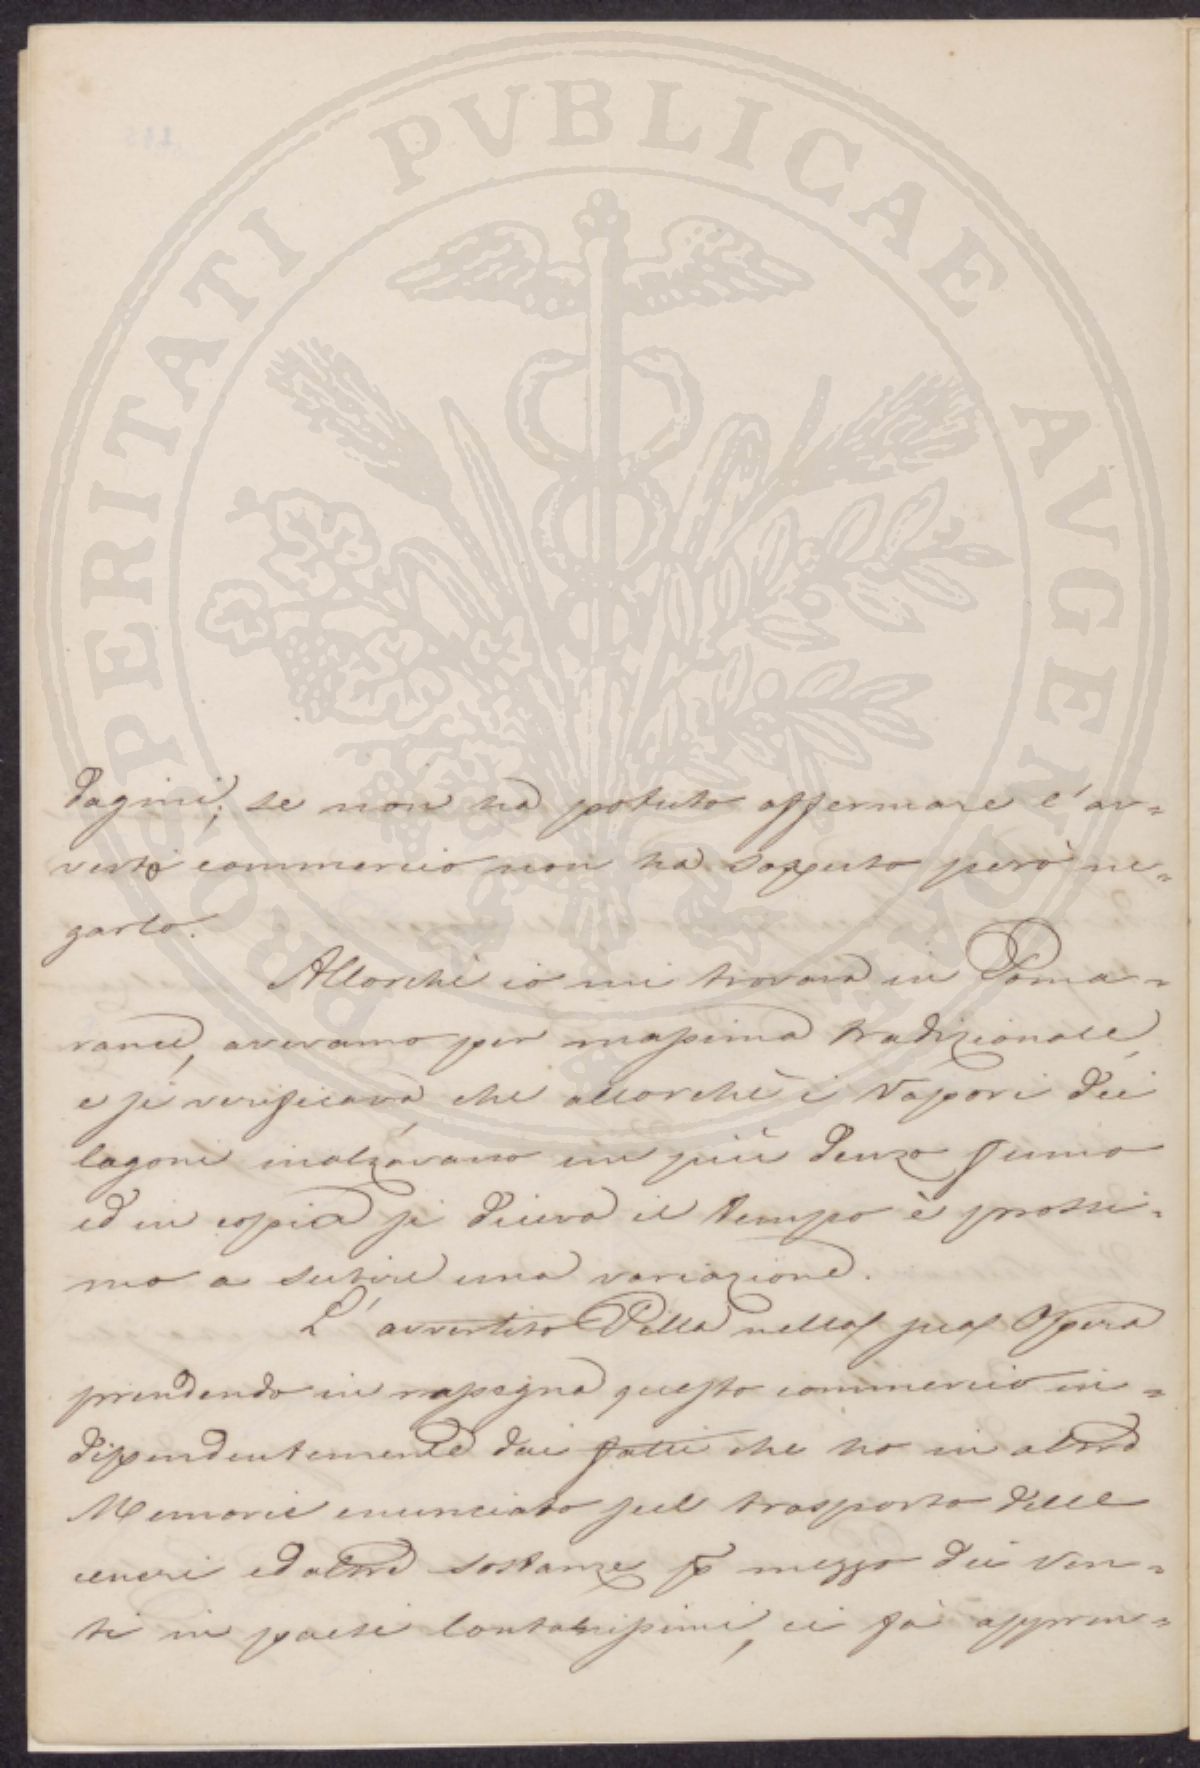 PROSPERITATI PVBLICAE AVGENDAE
dagini; se non ha potuto affermare l'av=
vertito commercio non ha saputo però ne=
garlo.
Allorché io mi trovava in Poma=
rance, avevamo per massima tradizionale,
e si verificava, che allorchè i Vapori dei
lagoni inalzavano un più denzo fumo
ed in copia si diceva il tempo è prossi=
mo a subire una variazione.
L'avvertito Pilla nella sua Opera
prendendo in rassegna questo commercio in=
dipendentemente dai fatti che ho in altra
Memoria enunciato sul trasporto delle
ceneri ed altre sostanze p mezzo dei Ven=
ti in paesi lontanissimi, ci fà appren=